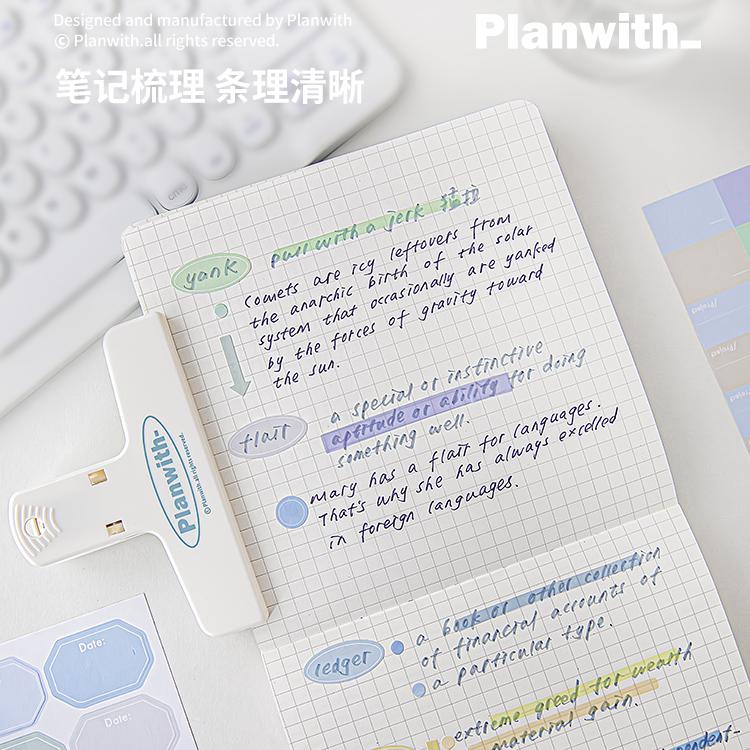 Designed and manufactured by Planwith
© Planwith.all rights reserved.
Planwith_
笔记梳理 条理清晰
yank
pull with a jerk 猛拉
Comets are icy leftovers from
the anarchic birth of the solar
system that occasionally are yanked
by the forces of gravity toward
the sun.
flair
a special or instinctive
aptitude or ability for doing
something well.
Mary has a flair for languages.
That's why she has always excelled
in foreign languages.
Planwith-
© Planwith.all rights reserved.
ledger
a book or other collection
of financial accounts of
a particular type.
extreme greed for wealth
material gain.
Date:
Date:
Project
Project
Project